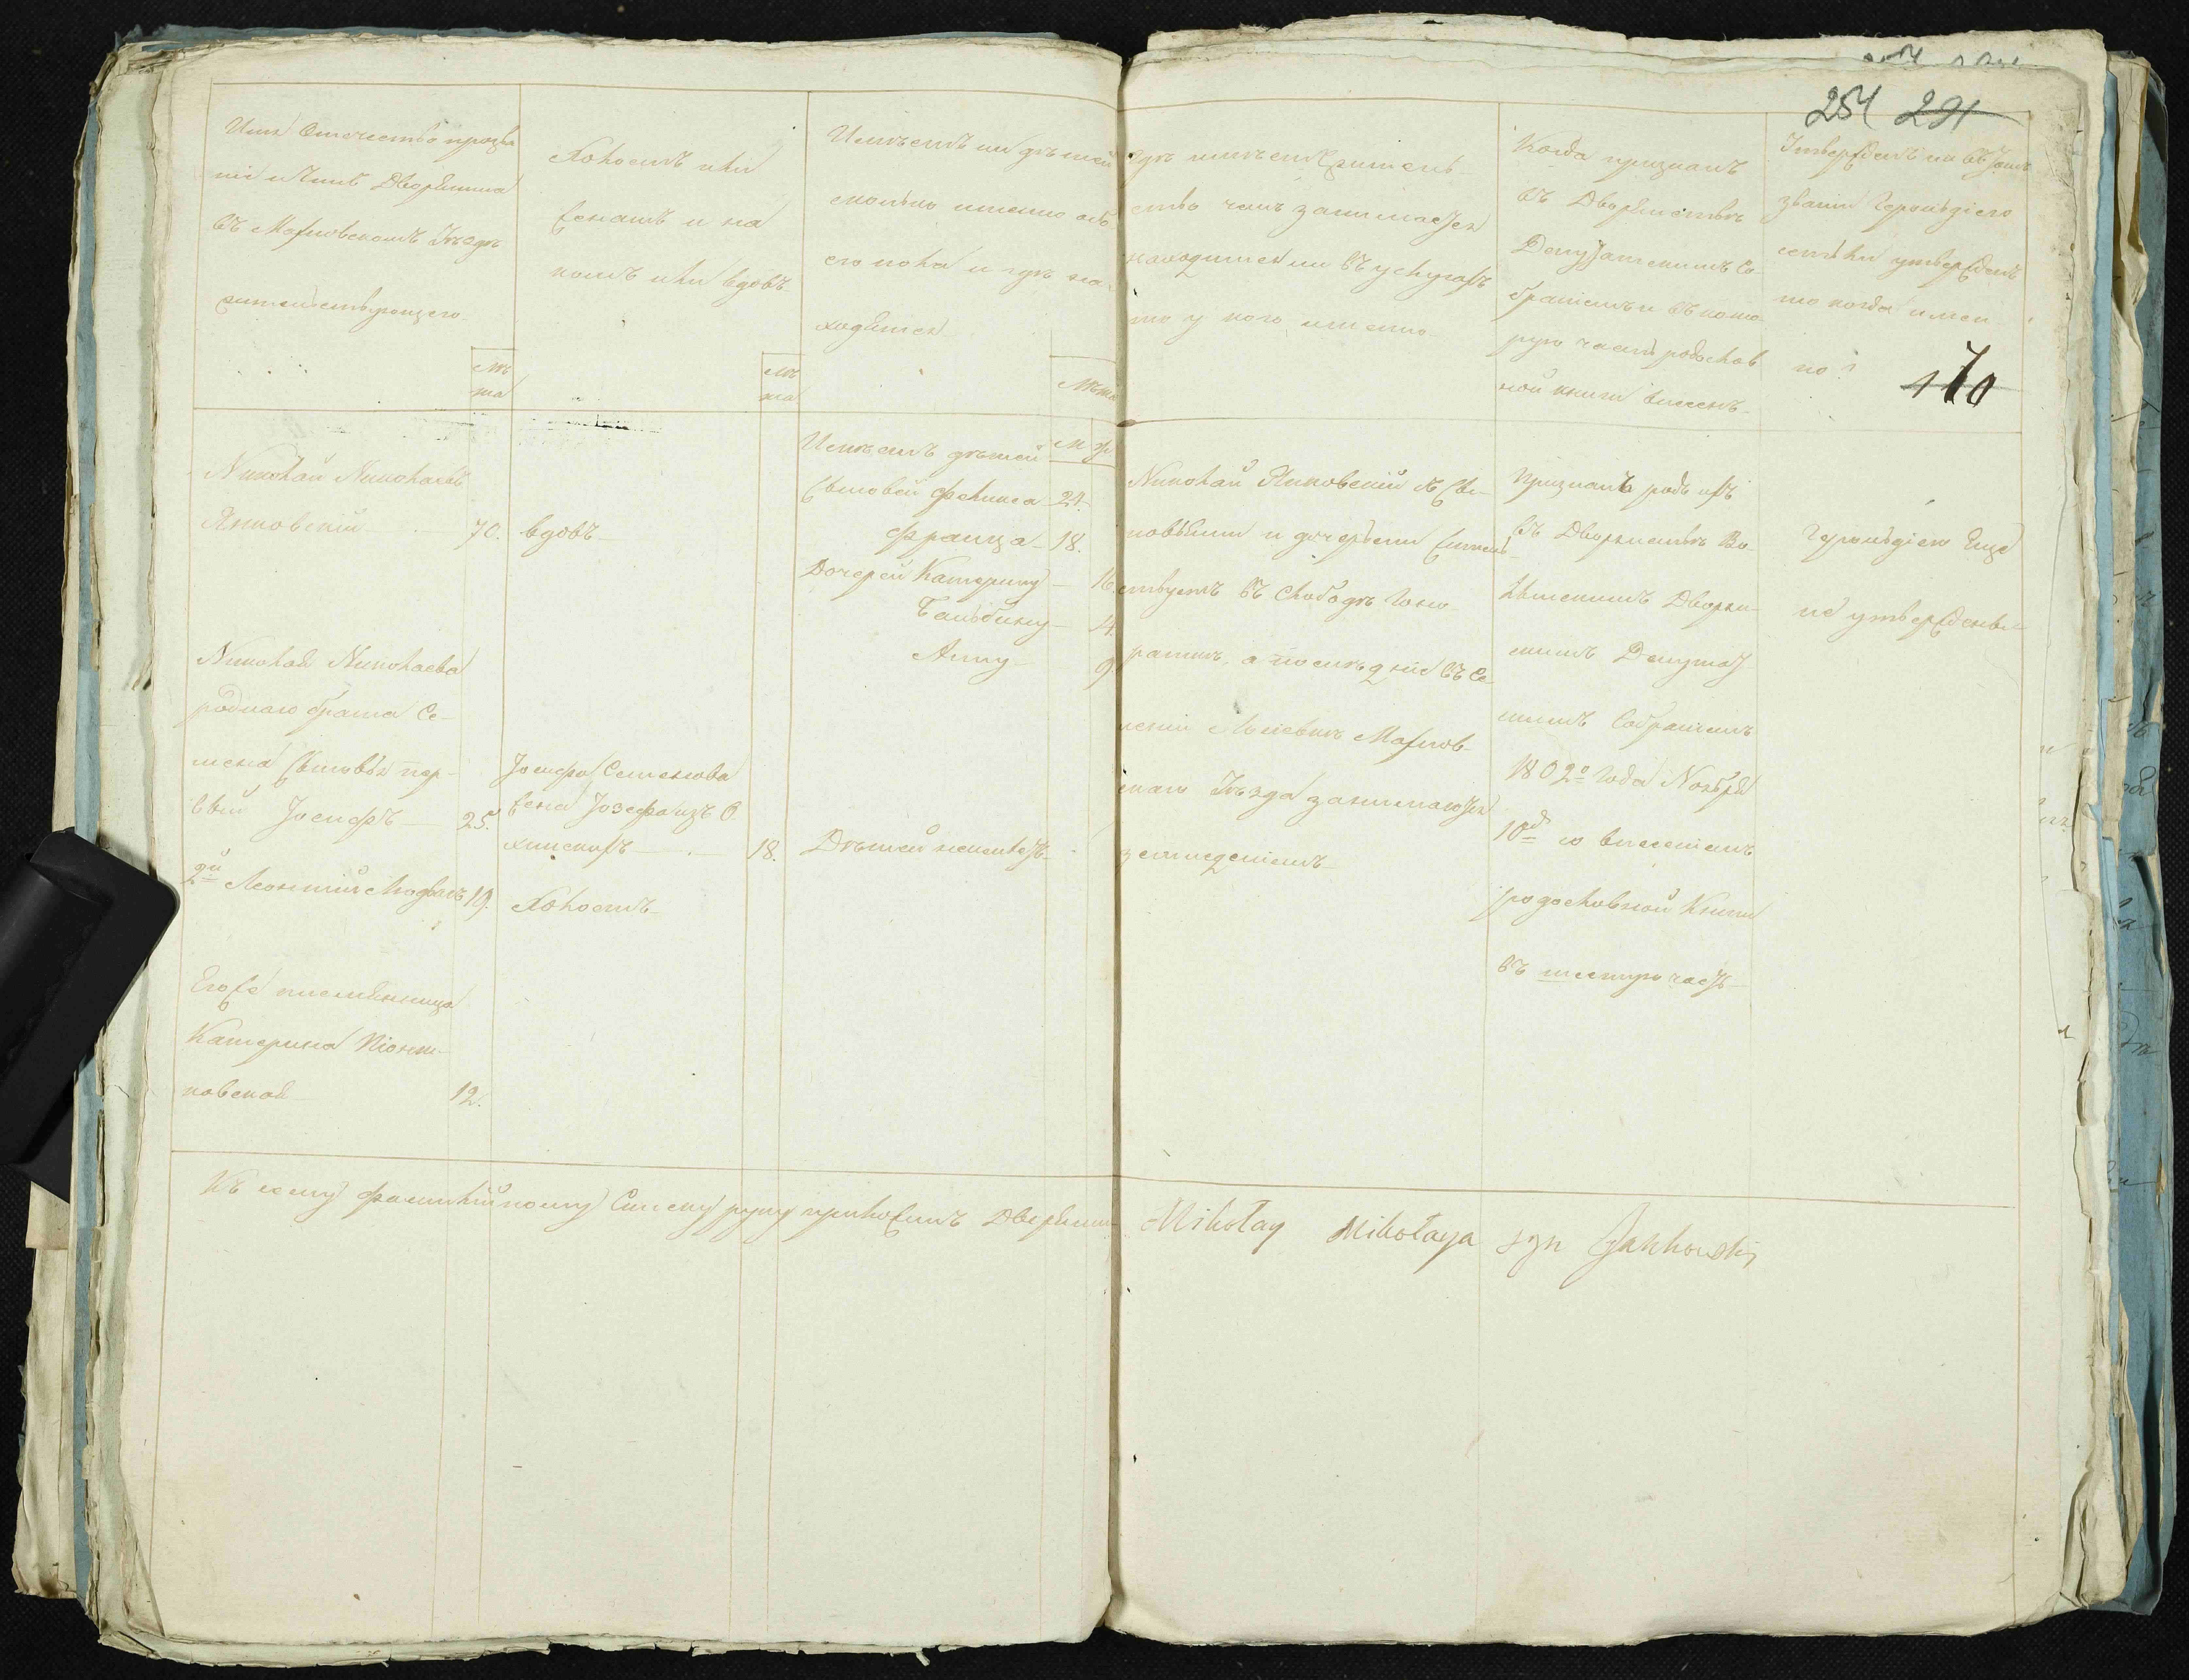 254 291
170
Имя Отечество прозва
ніе и Чинъ Дворянина
въ Махновскомъ Уѣздѣ
жительствующего
лѣ
та
Холостъ или
Женатъ и на
комъ или вдовъ
лѣ
та
Имѣетъ ли дѣтей
сколько именно обо
его пола и гдѣ на
ходятся
Лѣта
гдѣ имѣетъ житель
ство чемъ занимается
находится ли въ услугахъ
то у кого именно
Когда признанъ
въ Дворянствѣ
Депутатскимъ Со
браніемъ и въ кото
рую часть родослов
ной книги внесенъ
Утвержденъ ли въ томъ
званіи Герольдіею
естли утвержденъ
то когда имен
но
Николай Николаевъ
Янковскій 70.
вдовъ
Имѣетъ дѣтей М Ж
Сыновей Феликса 24.
Франца 18.
Дочерей Катерину 16.
Бальбину 14.
Анну 9
Николай Янковскій съ Сы-
новьями и дочерьми житель
ствуетъ въ Слободѣ
а послѣдніе въ Се
леніи Махнов
скаго Уѣзда занимаются
земледеніемъ
Признанъ родъ ихъ
въ Дворянствѣ Во
лынскимъ Дворян
скимъ Депутат
скимъ Собраніемъ
1802го Года Ноября
10д со внесеніемъ
родословной Книги
въ шестую часть
Герольдіею Еще
не утверждены
Николая Николаева
роднаго брата Се-
мена Сыновья пер-
вый Іосифъ 25.
2й Леонтій Модфалъ 19.
Іосифа Семенова
жена Іозефа изъ О
хинскихъ 18.
Дѣтей неимеетъ
Холостъ
Его же племянница
Катерина Піонт-
ковская 12.
Къ сему фамилійному Списку руку приложилъ Дворянин
Mikołay Mikołaja syn Jankowski